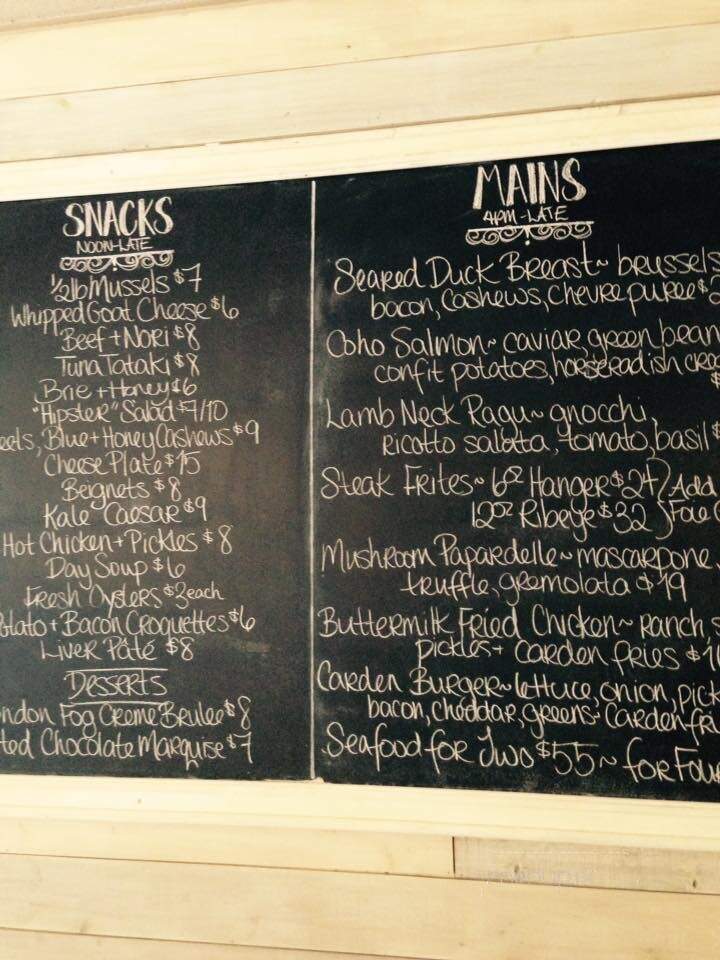 SNACKS
NOON-LATE
1/2lb Mussels $7
Whipped Goat Cheese $6
Beef + Nori $8
Tuna Tataki $8
Brie + Honey $6
"Hipster" Salad $7/10
eets, Blue + Honey Cashews $9
Cheese Plate $15
Beignets $8
Kale Caesar $9
Hot Chicken + Pickles $8
Day Soup $6
Fresh Oysters $3each
otato + Bacon Croquettes $6
Liver Pâté $8
Desserts
ondon Fog Creme Brulee $8
ted Chocolate Marquise $7
MAINS
4PM-LATE
Seared Duck Breast~ brussels
bacon, cashews, chevre puree $2
Coho Salmon~ caviar, green bean
confit potatoes, horseradish cre
$
Lamb Neck Ragu~ gnocchi,
ricotto salatta, tomato, basil $
Steak Frites~ 6oz Hanger $24 } Add
12oz Ribeye $32 } Foie
Mushroom Papardelle~ mascarpone,
truffle, gremolata $19
Buttermilk Fried Chicken~ Ranch, s
pickles + Carden fries $1
Carden Burger~ lettuce, onion, pick
bacon, cheddar, greens - Carden fri
Seafood for Two $55~ for Fou